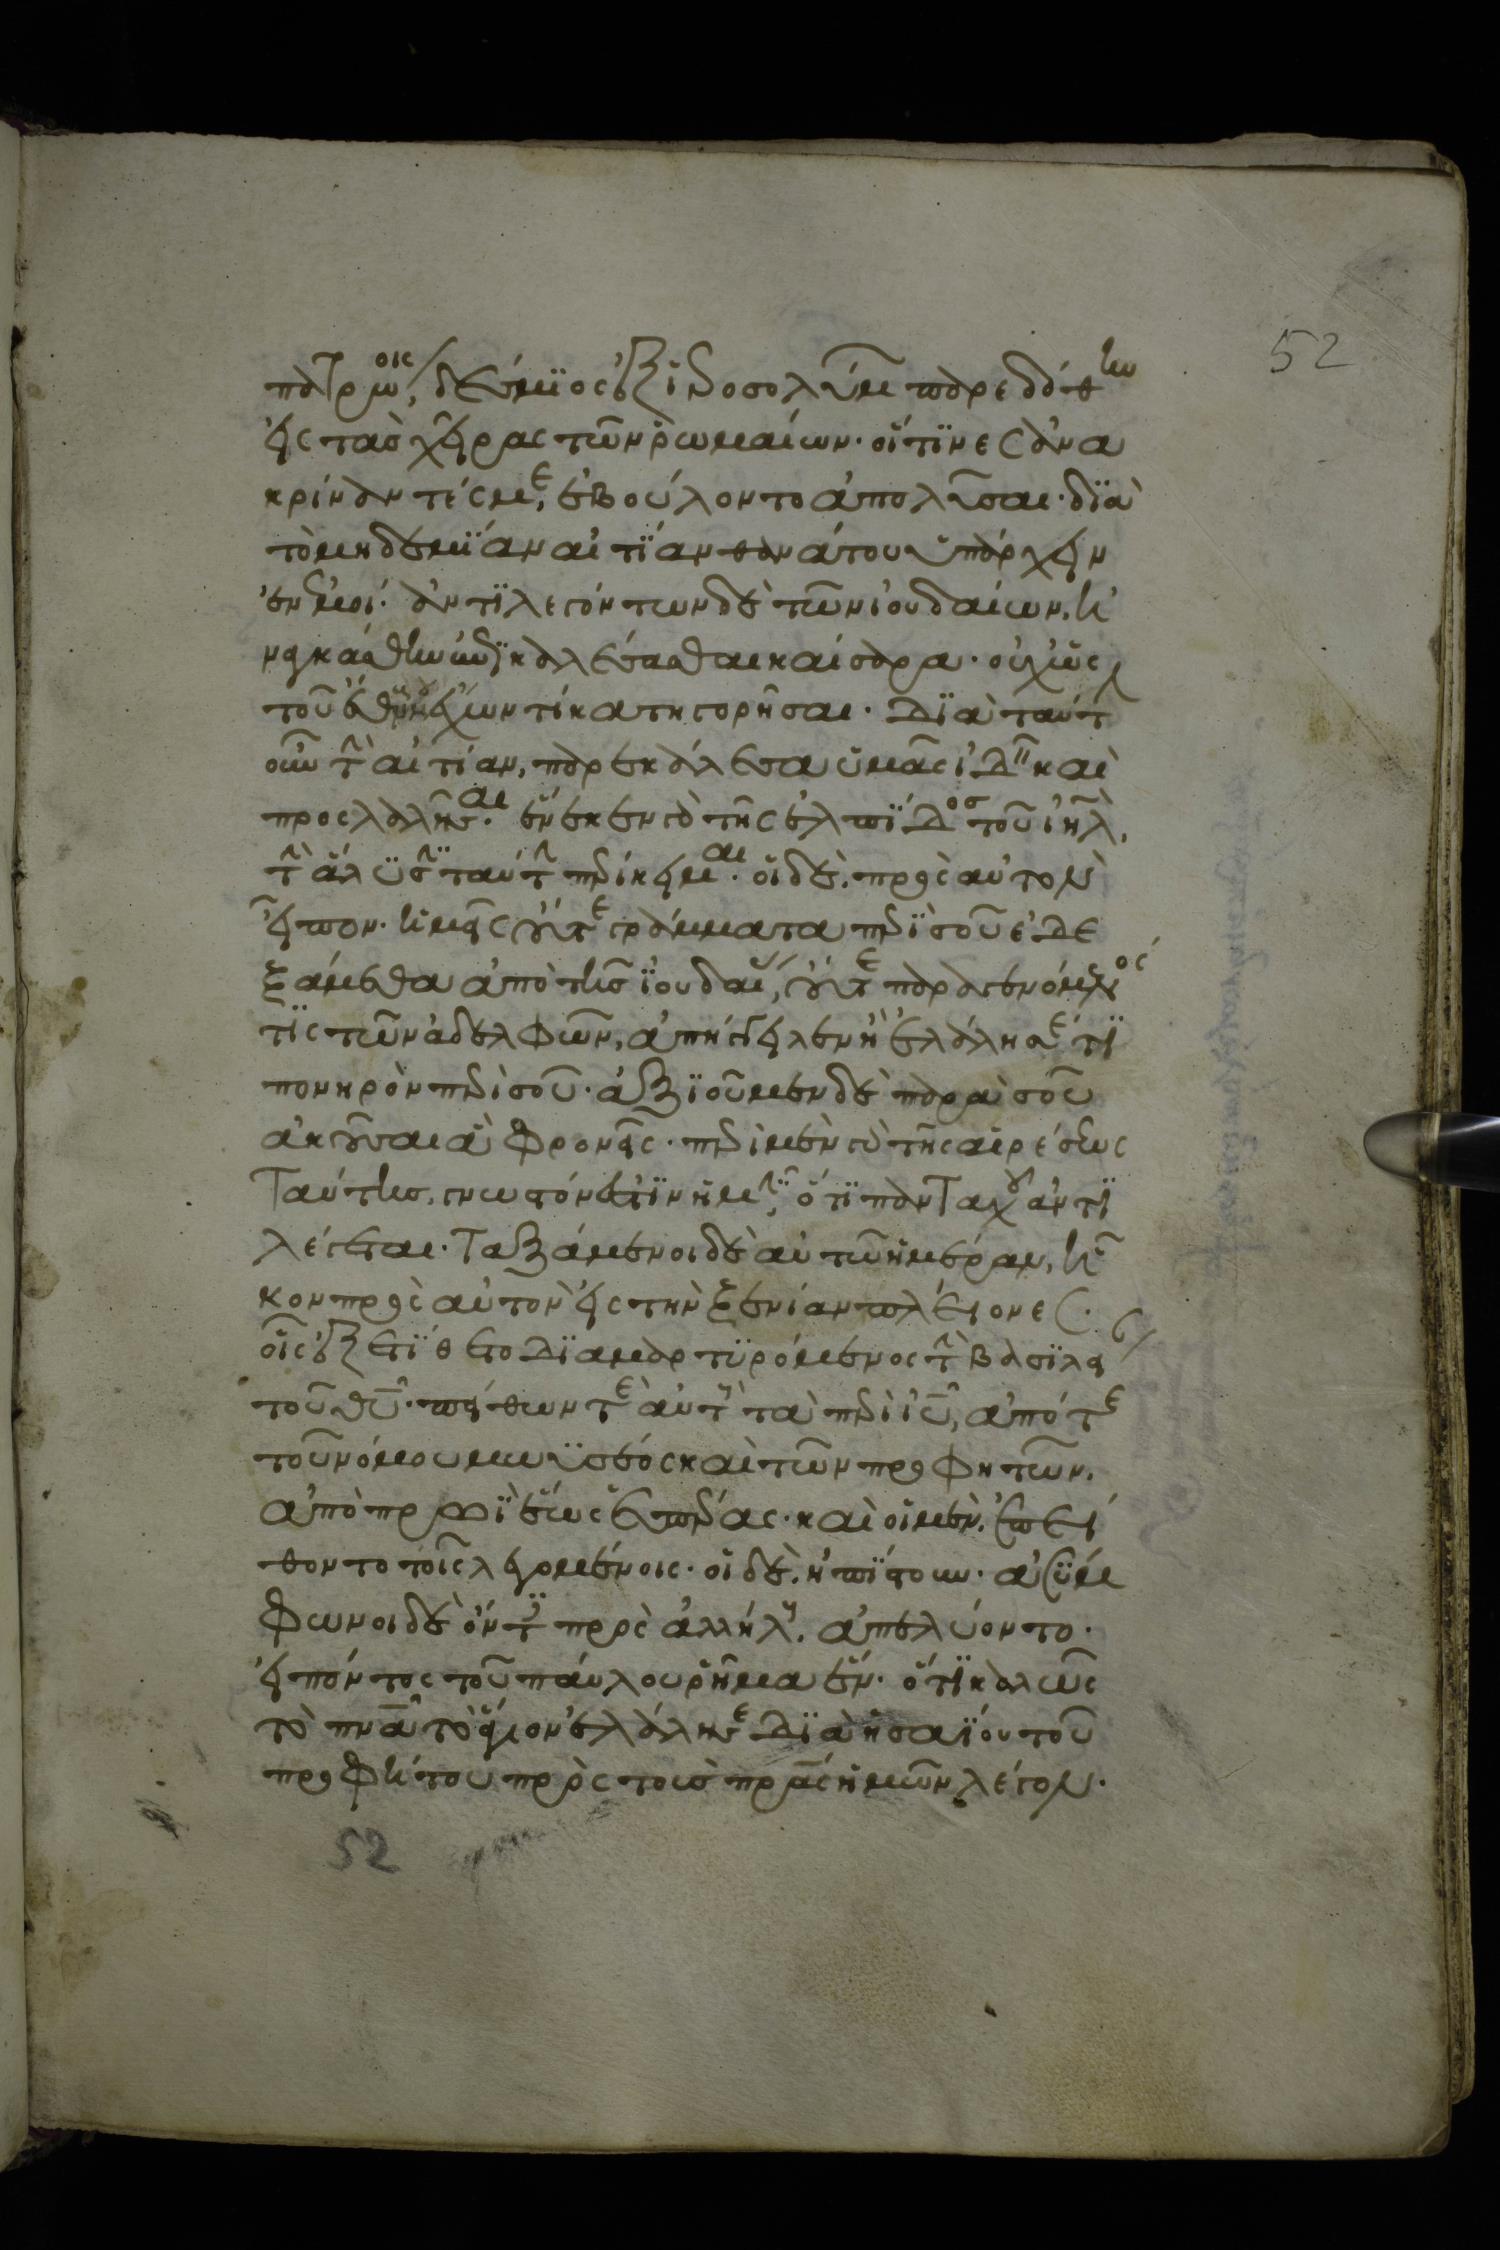 52
πατρώοις, δέσμϊος ἐξ ἱεροσολύμ παρεδόθην
εἰς τὰς χεῖρας τῶν ῥωμαίων· οἵτϊνες ἀνα
κρίναντές με, ἐβούλοντο ἀπολῦσαι· δϊὰ
τὸ μηδεμϊάν αἰτϊάν θανάτου ὑπάρχειν
ἐν ἐμοί· ἀντϊλεγόντων δὲ τῶν ἰουδαίων, ἠ
ναγκάσθην ἐπϊκαλέσασθαι καίσαρα· οὐχ ὡς
τοῦ ἔθνους μου ἔχων τί κατηγορῆσαι· Δϊὰ ταύτ
οὖν τὴν αἰτίαν, παρεκάλεσα ὑμᾶς ἰδεῖν καὶ
προσλαλῆσαι· ἕνεκεν γὰρ τῆς ἐλπϊδος τοῦ ἰηλ,
τὴν ἅλυσϊν ταύτην περίκειμαι· οἱ δὲ, πρὸς αὐτὸν
εἶπον· ἡμεῖς οὔτε γράμματα περὶ σοῦ ἐδε
ξάμεθα ἀπὸ τῆς ἰουδαί, οὔτε παραγενόμενός
τϊς τῶν ἀδελφῶν, ἀπήγγειλεν ἢ ἐλάλησέ τϊ
πονηρὸν περὶ σοῦ· ἀξϊοῦμεν δὲ παρὰ σοῦ
ἀκοῦσαι ἃ φρονεῖς· περὶ μὲν γὰρ τῆς αἱρέσεως
ταύτης, γνωστόν ἐστϊν ἡμῖν, ὅτϊ πανταχοῦ ἀντϊ
λέγεται· ταξάμενοι δὲ αὐτῶ ἡμέραν, ἧ
κον πρὸς αὐτὸν εἰς τὴν ξενίαν πλείονες·
οἷς ἐξετϊθετο Δϊαμαρτϋρόμενος τὴν βασϊλεί
τοῦ θυ· πείθων τε αὐτοὺς τὰ περὶ ἰυ, ἀπό τε
τοῦ νόμου μωϋσέος καὶ τῶν προφητῶν,
ἀπὸ πρωϊ ἕως ἑσπέρας· καὶ οἱ μὲν, ἐπεί
θοντο τοῖς λεγομένοις· οἱ δὲ, ἠπϊστουν· ἀσϋμ
φωνοι δὲ ὄντες πρὸς ἀλλήλους, ἀπελύοντο·
εἰπόντος τοῦ παύλου ῥῆμα ἕν· ὅτϊ καλῶς
τὸ πνα τὸ ἅγιον ἐλάλησε Δϊὰ ἡσαΐου τοῦ
προφήτου πρὸς τοὺς πρας ἡμῶν λέγον·
52